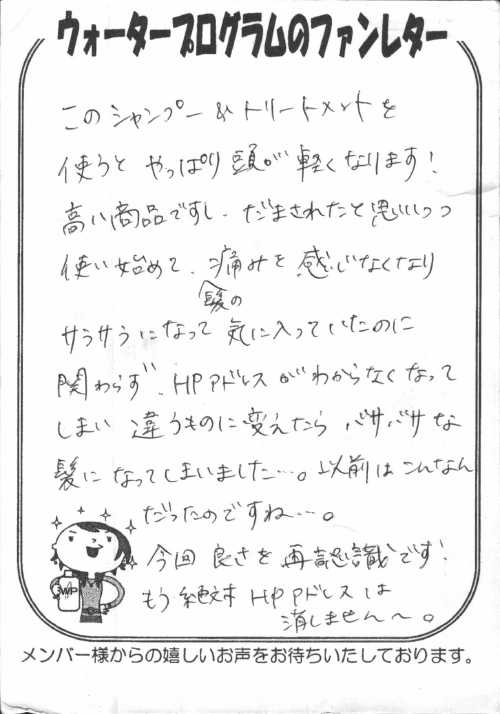 ウォータープログラムのファンレター
このシャンプー&トリートメントを
使うと やっぱり頭が軽くなります!
高い商品ですし、だまされたと思いつつ
使い始めて、痛みを感じなくなり
髪の
サラサラになって 気に入っていたのに
関わらず、HPアドレスがわからなくなって
しまい 違うものに変えたら バサバサな
髪になってしまいました…。以前はこんなん
だったのですね…。
今回 良さを再認識です!
もう絶対 HPアドレスは
消しません〜。
WP
メンバー様からの嬉しいお声をお待ちいたしております。